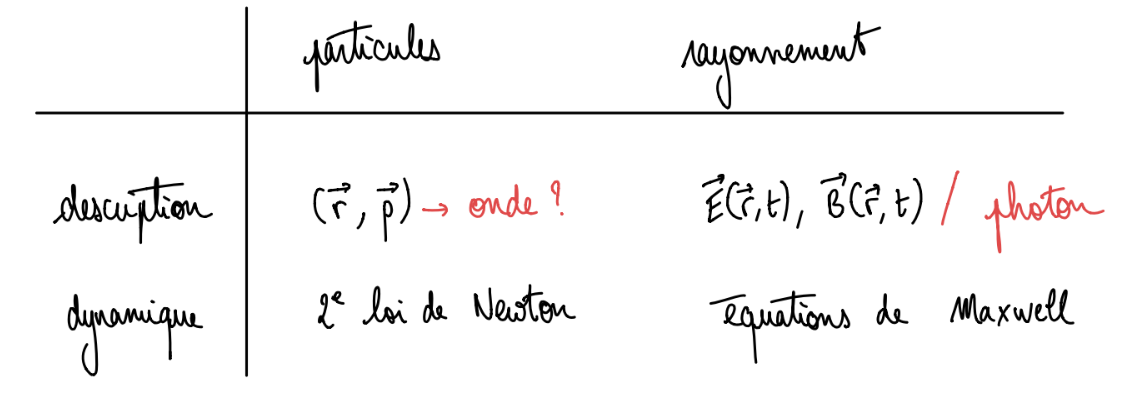 particules rayonnement
description (r⃗, p⃗) → onde ? E⃗(r⃗,t), B⃗(r⃗,t) / photon
dynamique 2e loi de Newton équations de Maxwell